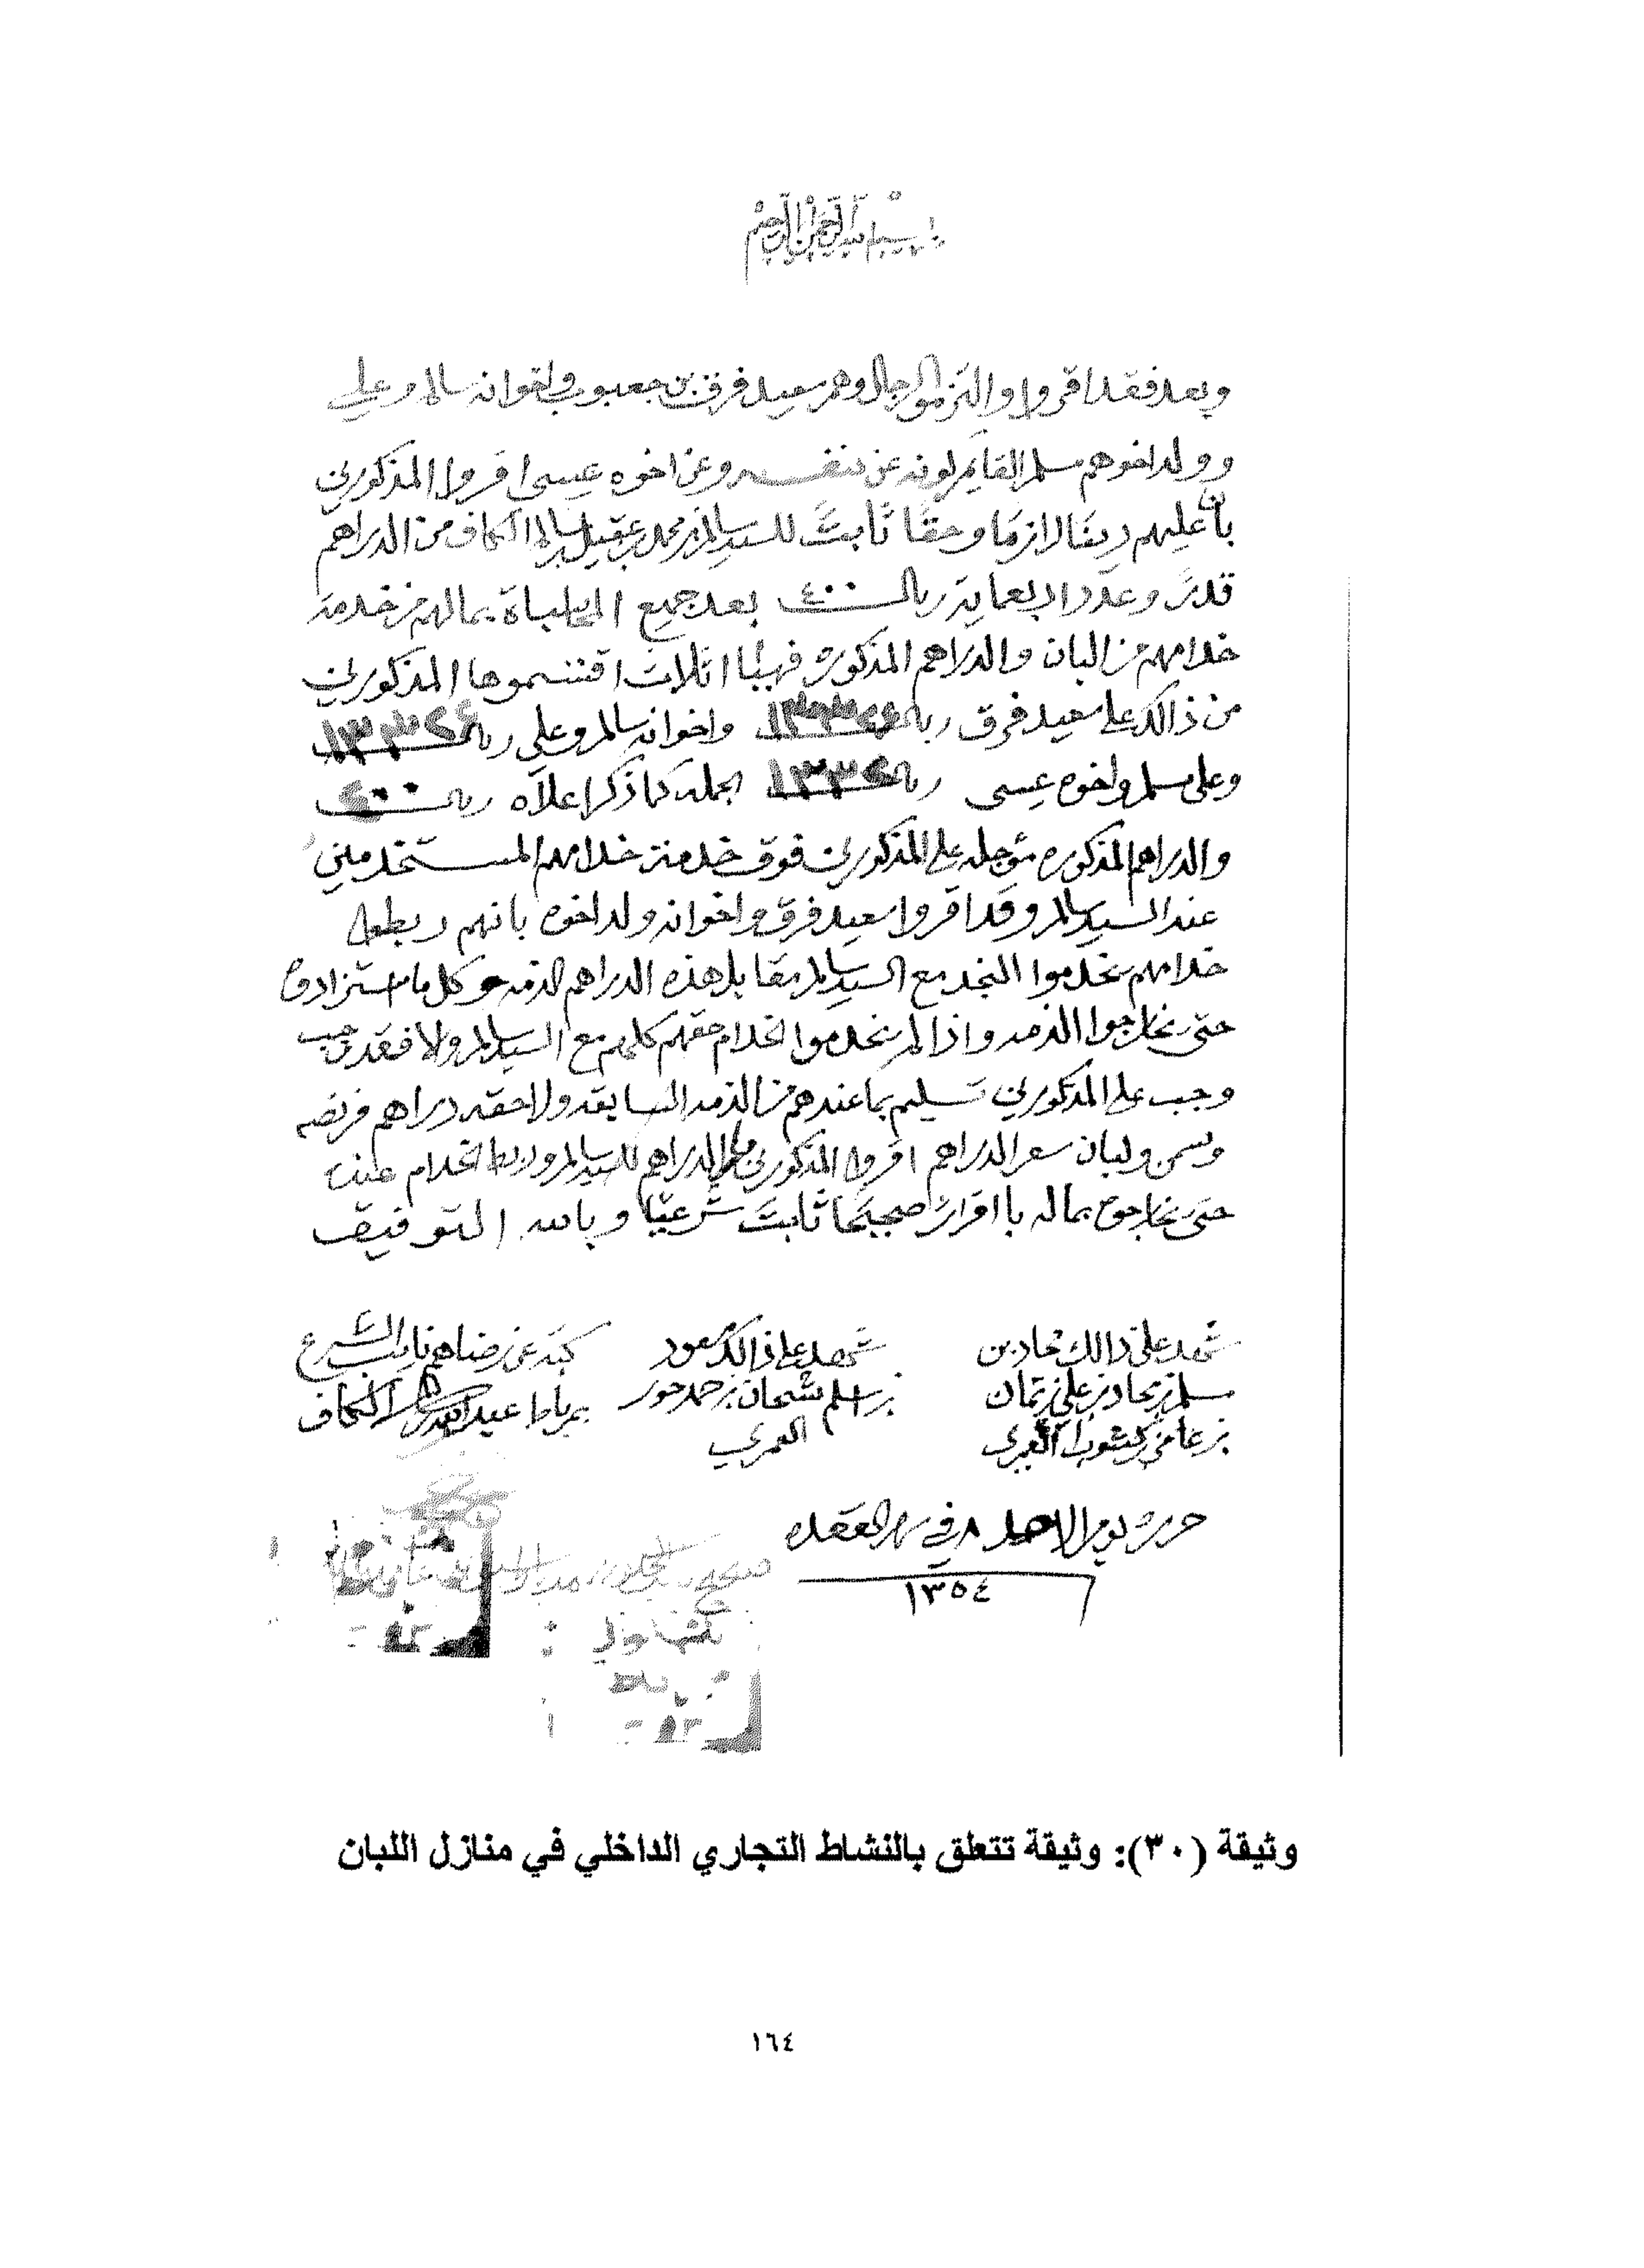 بسم الله الرحمن الرحيم
وبعد فقد اقروا والتزموا الرجال وهم سعيد فرق بن جعبوب واخوانه سالم وعلي
وولد اخوهم سلم القايم لونه عن نفسه وعن اخوه عيسى اقروا المذكورين
بان عليهم دينا لازما وحقا ثابت للسيد سالم بن محمد بن عقيل بن سالم الكاف من الدراهم
قدر وعدد اربعماية ريال ٤٠٠ بعد جميع بمالهم من خدمة
خدامهم من البان والدراهم المذكوره اثلاث اقتسموها المذكورين
من ذالك على سعيد فرق ريال واخوانه سالم وعلي ريال
وعلى سلم واخوه عيسى ريال الجمله كما ذكر اعلاه ريال ٤٠٠
والدراهم المذكوره مؤجله على المذكورين فوق خدمة خدامهم المستخدمين
عند السيد سالم وقد اقروا سعيد فرق واخوانه وولد اخوه بانهم ربطوا
خدامهم يخدموا النجد مع السيد سالم مقابل هذه الدراهم الذمه وكل ما استزادوه
حتى يخارجوا الذمه واذا لم يخدموا الخدام حقهم كلهم مع السيد سالم ولا فقد وجب
وجب على المذكورين تسليم بما عندهم من الذمه السابقه ولاحقه دراهم فرنصه
وسمن ولبان سعر الدراهم اقروا المذكورين الدراهم للسيد سالم وربط الخدام عنده
حتى يخارجوه بماله باقرار صحيحا ثابت شرعيا وبالله التوفيق
شهد على ذالك محاد بن
سلم بن محاد بن علي بن تمان
بن عامر كشوب العمري
شهد على ذالك سعود
بن سلم شحان بن حمد حور
العمري
كتبه عن رضاهم نايب الشرع
بمرباط عيدروس الكاف
حرر يوم الاحد ٨ في شهر القعده
١٣٥٤
وثيقة (٣٠): وثيقة تتعلق بالنشاط التجاري الداخلي في منازل اللبان
١٦٤